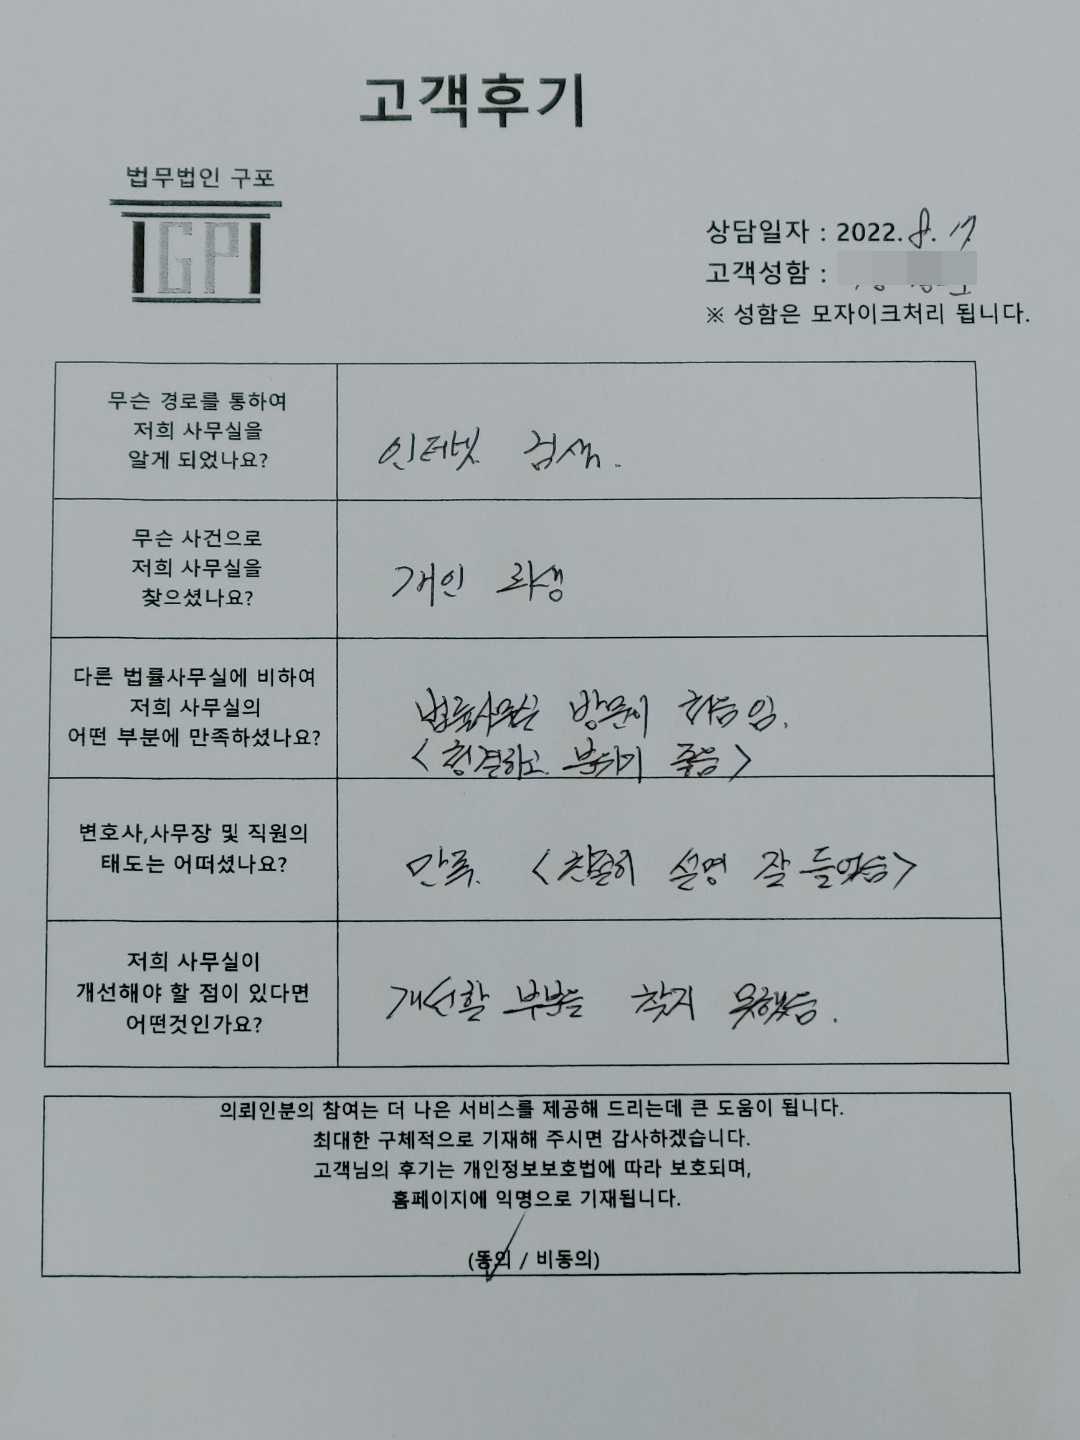 고객후기
법무법인 구포
GP
상담일자 : 2022. 8. 17
고객성함 :
※ 성함은 모자이크처리 됩니다.
무슨 경로를 통하여
저희 사무실을
알게 되었나요?
인터넷 검색.
무슨 사건으로
저희 사무실을
찾으셨나요?
개인 회생
다른 법률사무실에 비하여
저희 사무실의
어떤 부분에 만족하셨나요?
법률사무실은 방문이 처음 임.
<청결하고. 분위기 좋음>
변호사,사무장 및 직원의
태도는 어떠셨나요?
만족. <친절히 설명 잘 들었음>
저희 사무실이
개선해야 할 점이 있다면
어떤것인가요?
개선할 부분을 찾지 못했음.
의뢰인분의 참여는 더 나은 서비스를 제공해 드리는데 큰 도움이 됩니다.
최대한 구체적으로 기재해 주시면 감사하겠습니다.
고객님의 후기는 개인정보보호법에 따라 보호되며,
홈페이지에 익명으로 기재됩니다.
(동의 / 비동의)